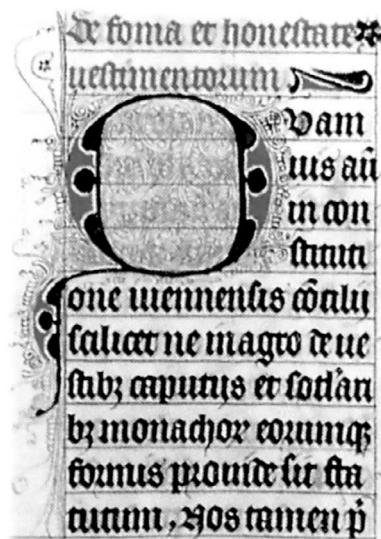 de foma et honestate
uestimentorum
Quam
uis aū
in con
stituti
one uiennensis cōcilij
scilicet ne in agro de ue
stibꝫ caputijs et sotl'ari
bꝫ monachoꝝ eorumqꝫ
formis prouide sit sta
tutum, Nos tamen p̄